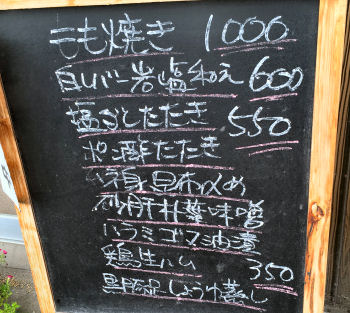 もも焼き 1000
白レバー岩塩和え 600
塩ごしたたき 550
ポン酢たたき
ささ身昆布〆め
砂肝朴葉味噌
ハラミゴマ油漬
鶏生ハム 350
黒豚足しょうゆ蒸し